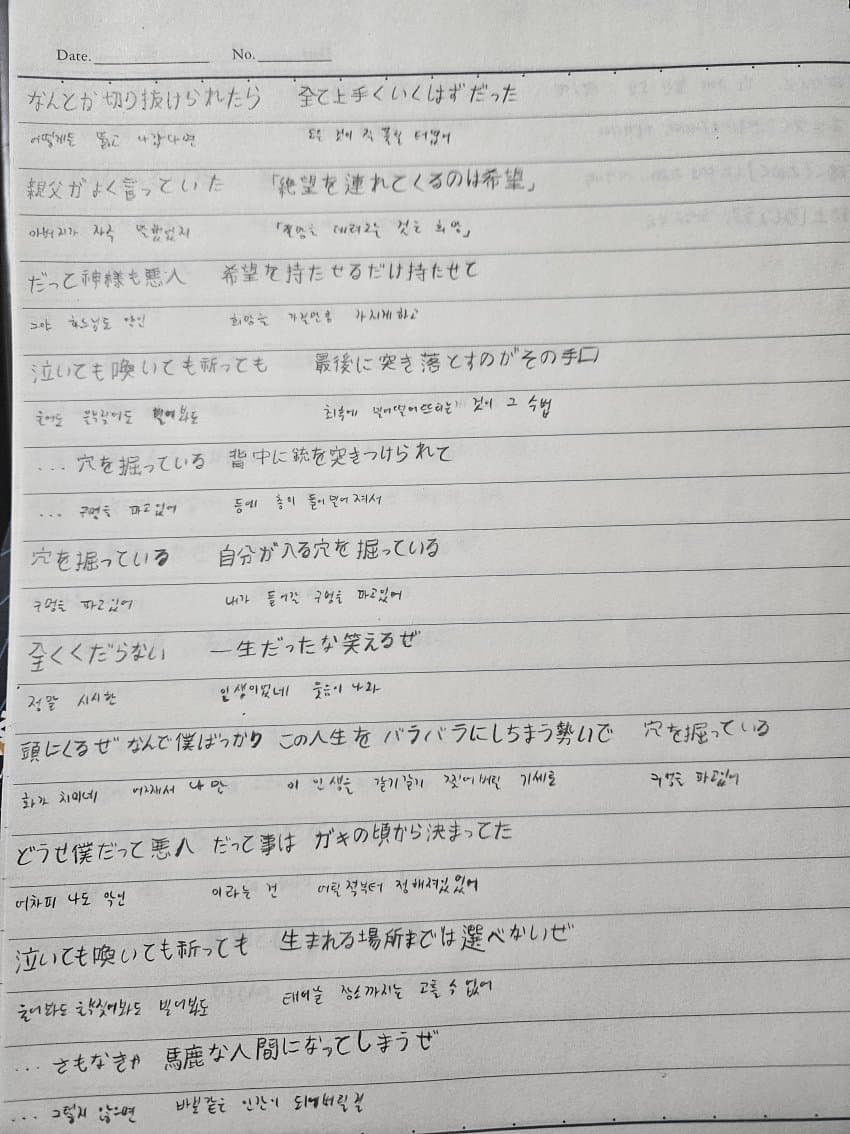 Date. No.
なんとか切り抜けられたら 全て上手くいくはずだった
어떻게든 뚫고 나갔다면 모든 것이 잘 터였어
親父がよく言っていた 「絶望を連れてくるのは希望」
아버지가 자주 말했었지 「절망을 데려오는 것은 희망」
だって神様も悪人 希望を持たせるだけ持たせて
그야 하느님도 악인 희망을 가질만큼 가지게하고
泣いても喚いても祈っても 最後に突き落とすのがその手口
울어도 울부짖어도 빌어봐도 최후에 밀어떨어뜨리는 것이 그 수법
... 穴を掘っている 背中に銃を突きつけられて
... 구멍을 파고있어 등에 총이 들이밀어져서
穴を掘っている 自分が入る穴を掘っている
구멍을 파고있어 내가 들어갈 구멍을 파고있어
全くくだらない 一生だったな笑えるぜ
정말 시시한 인생이었네 웃음이 나와
頭にくるぜ なんで僕ばっかり この人生を バラバラにしちまう勢いで 穴を掘っている
화가 치미네 어째서 나만 이 인생을 갈기갈기 찢어버릴 기세로 구멍을 파고있어
どうせ僕だって悪人 だって事は ガキの頃から決まってた
어차피 나도 악인 이라는 건 어릴적부터 정해져있었어
泣いても喚いても祈っても 生まれる場所までは選べないぜ
울어봐도 울부짖어봐도 빌어봐도 태어날 장소까지는 고를 수 없어
... さもなきゃ 馬鹿な人間になってしまうぜ
... 그렇지 않으면 바보같은 인간이 되어버릴걸